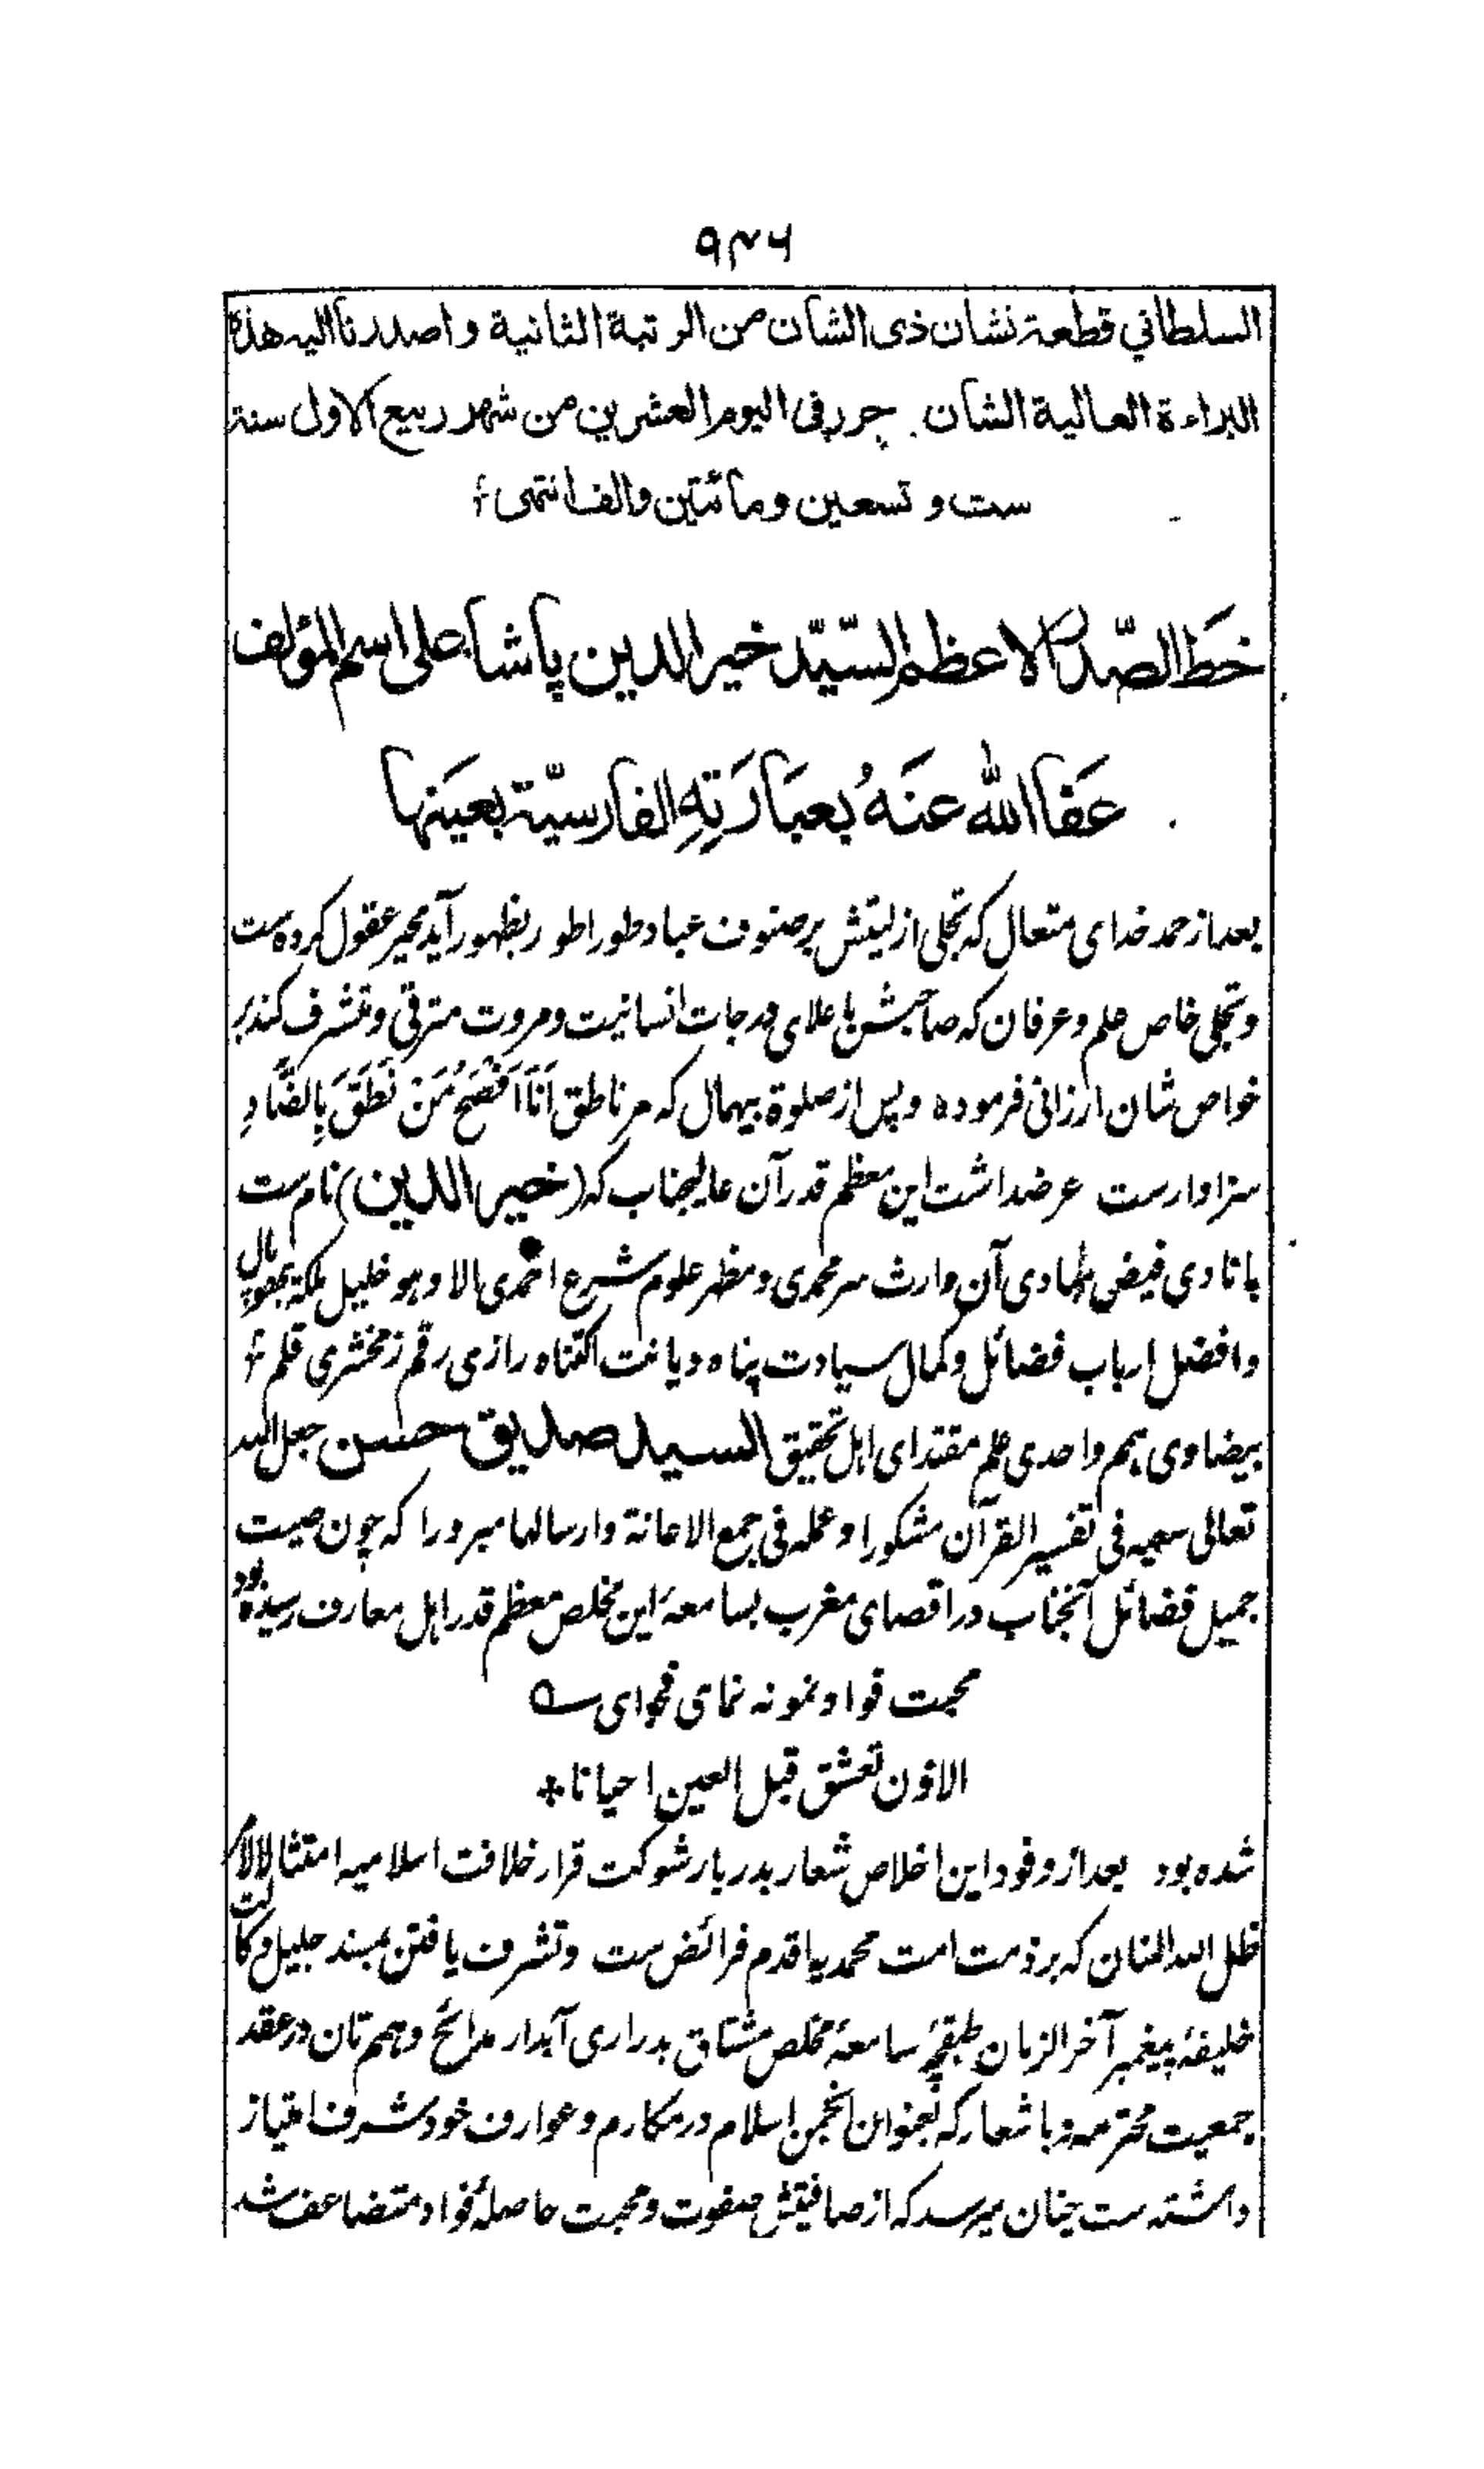 ۹۴۶
السلطاني قطعة نشان ذى الشان من الرتبة الثانية واصدرنا اليه هذة
البراءة العالية الشان حرر فى اليوم العشرين من شهر ربيع الاول سنة
ست و تسعين ومائتين والف انتهى
خط الصّدر الاعظم السّيّد خير الدين پاشا على اسم المؤلف
عفا الله عنه بعبارته الفارسيّة بعينها
بعد از حمد خداى متعال كه تجلى ازليتش بر صنوف عباد طورا طور بظهور آيد محير عقول كرده ست
و تجلى خاص علم و عرفان كه صاحبش باعلاى درجات انسانيت و مروت مترقى و متشرف كند بر
خواص شان ارزانى فرموده و پس از صلوة بيهمال كه مر ناطق اَنَا اَفْصَحُ مَنْ نَطَقَ بِالضَّادِ
سزاوارست عرضداشت اين معظم قدر آن عاليجناب كه (خير الدين) نام ست
با نادى فيض آن وارث سر محمدى و مظهر علوم شرع احمدى الا و هو خليل ملكة بهوپال
و افضل ارباب فضائل و كمال سيادت پناه ديانت اكتناه رازى رقم زمخشرى قلم
بيضاوى همم واحدى علم مقتداى اهل تحقيق السيد صديق حسن جعل الله
تعالى سعيه فى تفسير القرآن مشكورا و عمله فى جمع الاعانة و ارسالها مبرورا كه چون صيت
جميل فضائل آنجناب در اقصاى مغرب بسامعۀ اين مخلص معظم قدر اهل معارف رسيده بود
محبت فواد نمونه نماى فحواى ــه
الاذن تعشق قبل العين احيانا
شده بود بعد از وفود اين اخلاص شعار بدربار شوكت قرار خلافت اسلاميه امتثالا لامر
ظل الله المنان كه بر ذمت امت محمديه اقدم فرائض ست و تشرف يافتن بمسند جليل وكالت
خليفۀ پيغمبر آخر الزمان سامعۀ مخلص مشتاق بدرارى آبدار مدائح و همم تان در عقد
جمعيت محترمه كه بعنوان انجمن اسلام در مكارم و عوارف خود شرف امتياز
داشته ست چنان ميرسد كه از صافيتش صفوت و محبت حاصلۀ فواد متضاعف شد